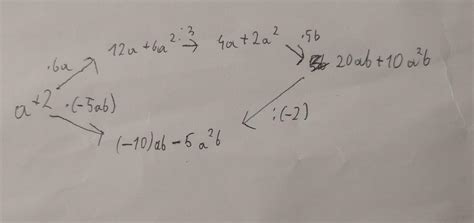 ·6a 12a+6a² :3 → 4a+2a² ·5b
20ab+10a²b
a+2 ·(-5ab)
:(-2)
(-10)ab-5a²b